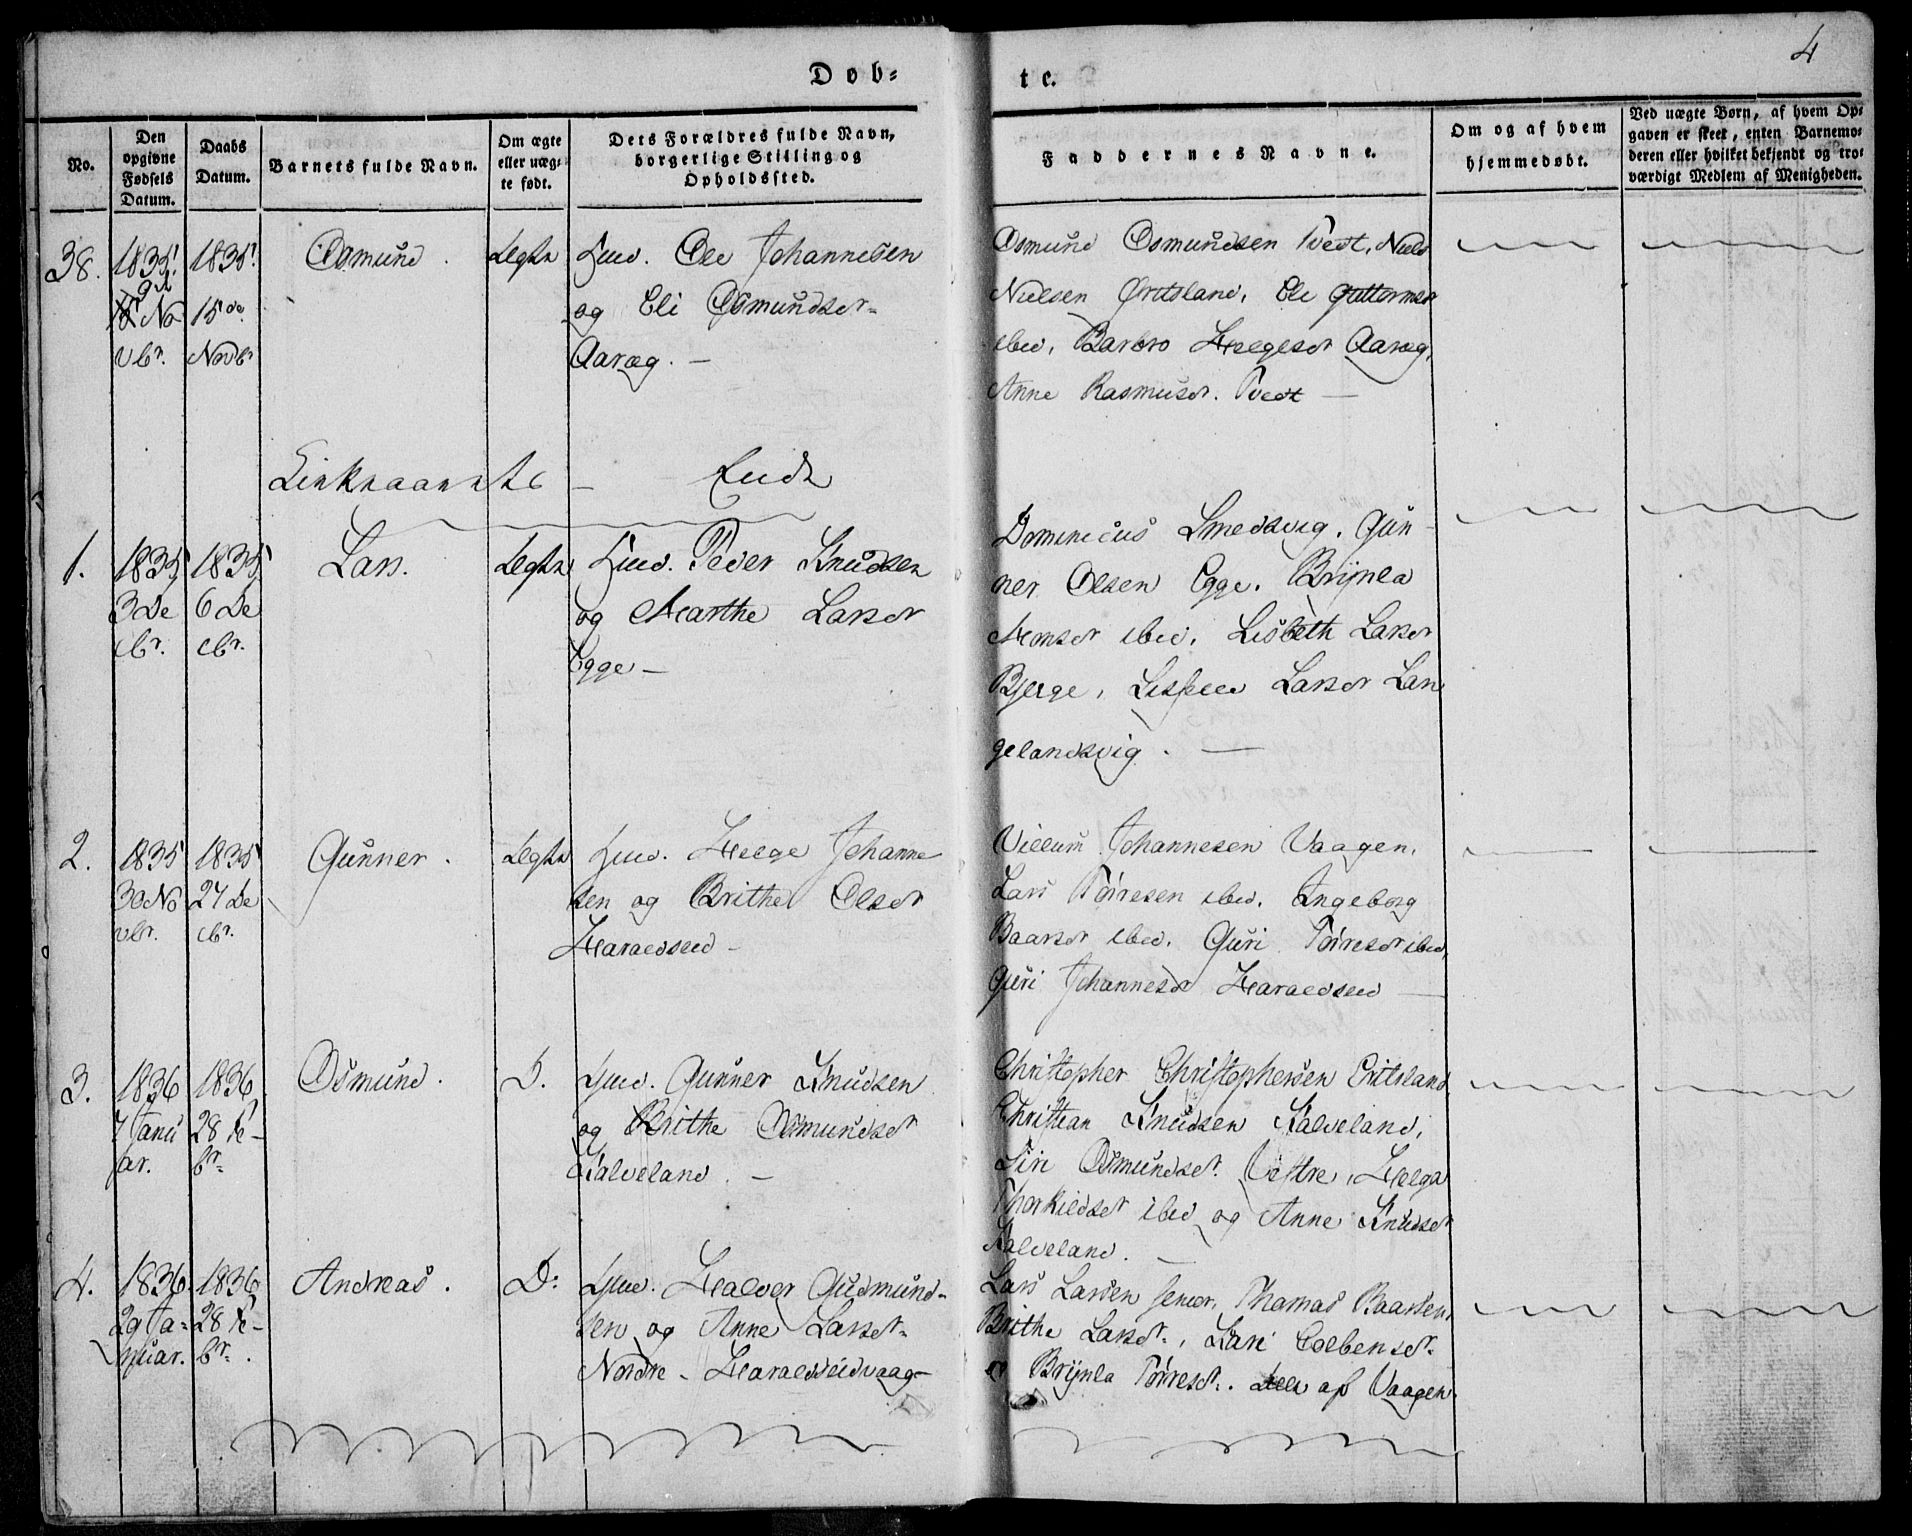 4
Døb-
te.
No.
Den opgivne Fødsels Datum.
Daabs Datum.
Barnets fulde Navn.
Om ægte eller uægte født.
Dets Forældres fulde Navn, borgerlige Stilling og Opholdssted.
Faddernes Navne.
Om og af hvem hjemmedøbt.
Ved uægte Børn, af hvem Opgaven er skeet, enten Barnemoderen eller hvilket bekjendt og troværdigt Medlem af Menigheden.
38.
1835.
9de
No
vbr.
1835.
15de
Novbr
Osmund.
Ægte
Huu. Ole Johannesen
og Eli Osmundsdr.
Aaræg. —
Osmund Osmundsen Tvedt, Niels
Nielsen Øritsland, Eli Guttormsdr
ibid, Barbro Helgesdr Aaræg,
Anne Rasmusdr. Tvedt —
Kirkeaarets — Ende
1.
1835
3 De
cbr.
1835
6 De
cbr.
Lars.
Ægte
Huu. Peder Knudsen
og Marthe Larsdr
Egge —
Dominicus Smedsvig, Gun-
ner Olsen Egge, Brynla
Monsdr ibid, Lisbeth Larsdr
Bjerge, Larsdr Lan
gelandsvig. —
2.
1835
30 No
vbr.
1835
27 De
cbr.
Gunner.
Ægte
Huu. Helge Johanne
sen og Brithe Olsdr
Haraldseid —
Villum Johannesen Vaagen,
Lars Tørresen ibid, Ingeborg
Baarsdr ibid, Guri Tørresdr ibid,
Guri Johannesdr Haraldseid —
3.
1836
7 Janu
ar.
1836
28 Fe-
br.
Osmund.
D.
Huu. Gunner Knudsen
og Brithe Osmundsdr
Kalveland. —
Christopher Christophersen Eritsland,
Christian Knudsen Kalveland,
Siri Osmundsdr. Vestre, Helga
Thorkildsdr ibid og Anne Knudsdr
Kalveland. —
4.
1836
29 Ja-
nuar.
1836
28 Fe-
br.
Andreas.
D:
Huu. Halvor Gudmund-
sen og Anne Larsdr.
Nordre - Haraldseidvaag
Lars Larsen senior, Thomas Baarsen,
Brithe Larsdr., Kari Colbensdr.
og Brynla Tørresdr. Alle af Vaagen.